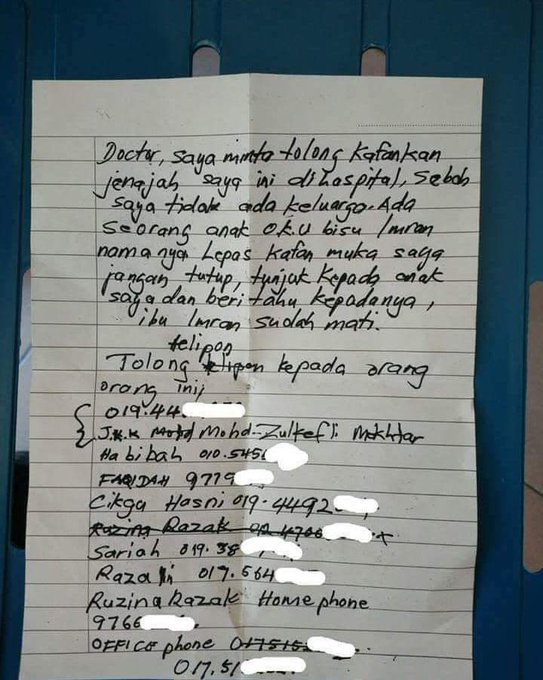 Doctor, saya minta tolong kafankan
jenajah saya ini di hospital, Sebab
saya tidak ada keluarga. Ada
seorang anak O.K.U bisu Imran
nama nya Lepas kafan muka saya
jangan tutup, tunjuk kepada anak
saya dan beri tahu kepadanya,
ibu Imran sudah mati.
telipon
Tolong telipon kepada orang
orang inij
019.44
J.K.K Mohd Mohd-Zulkefli Mkhtar
Habibah 010.545
FARIDAH 9779
Cikgu Hasni 019.4492
Ruzina Razak
Sariah 019.38
Razali 017.564
Ruzina Razak Home phone
9766
OFFICE phone 017515
017.51